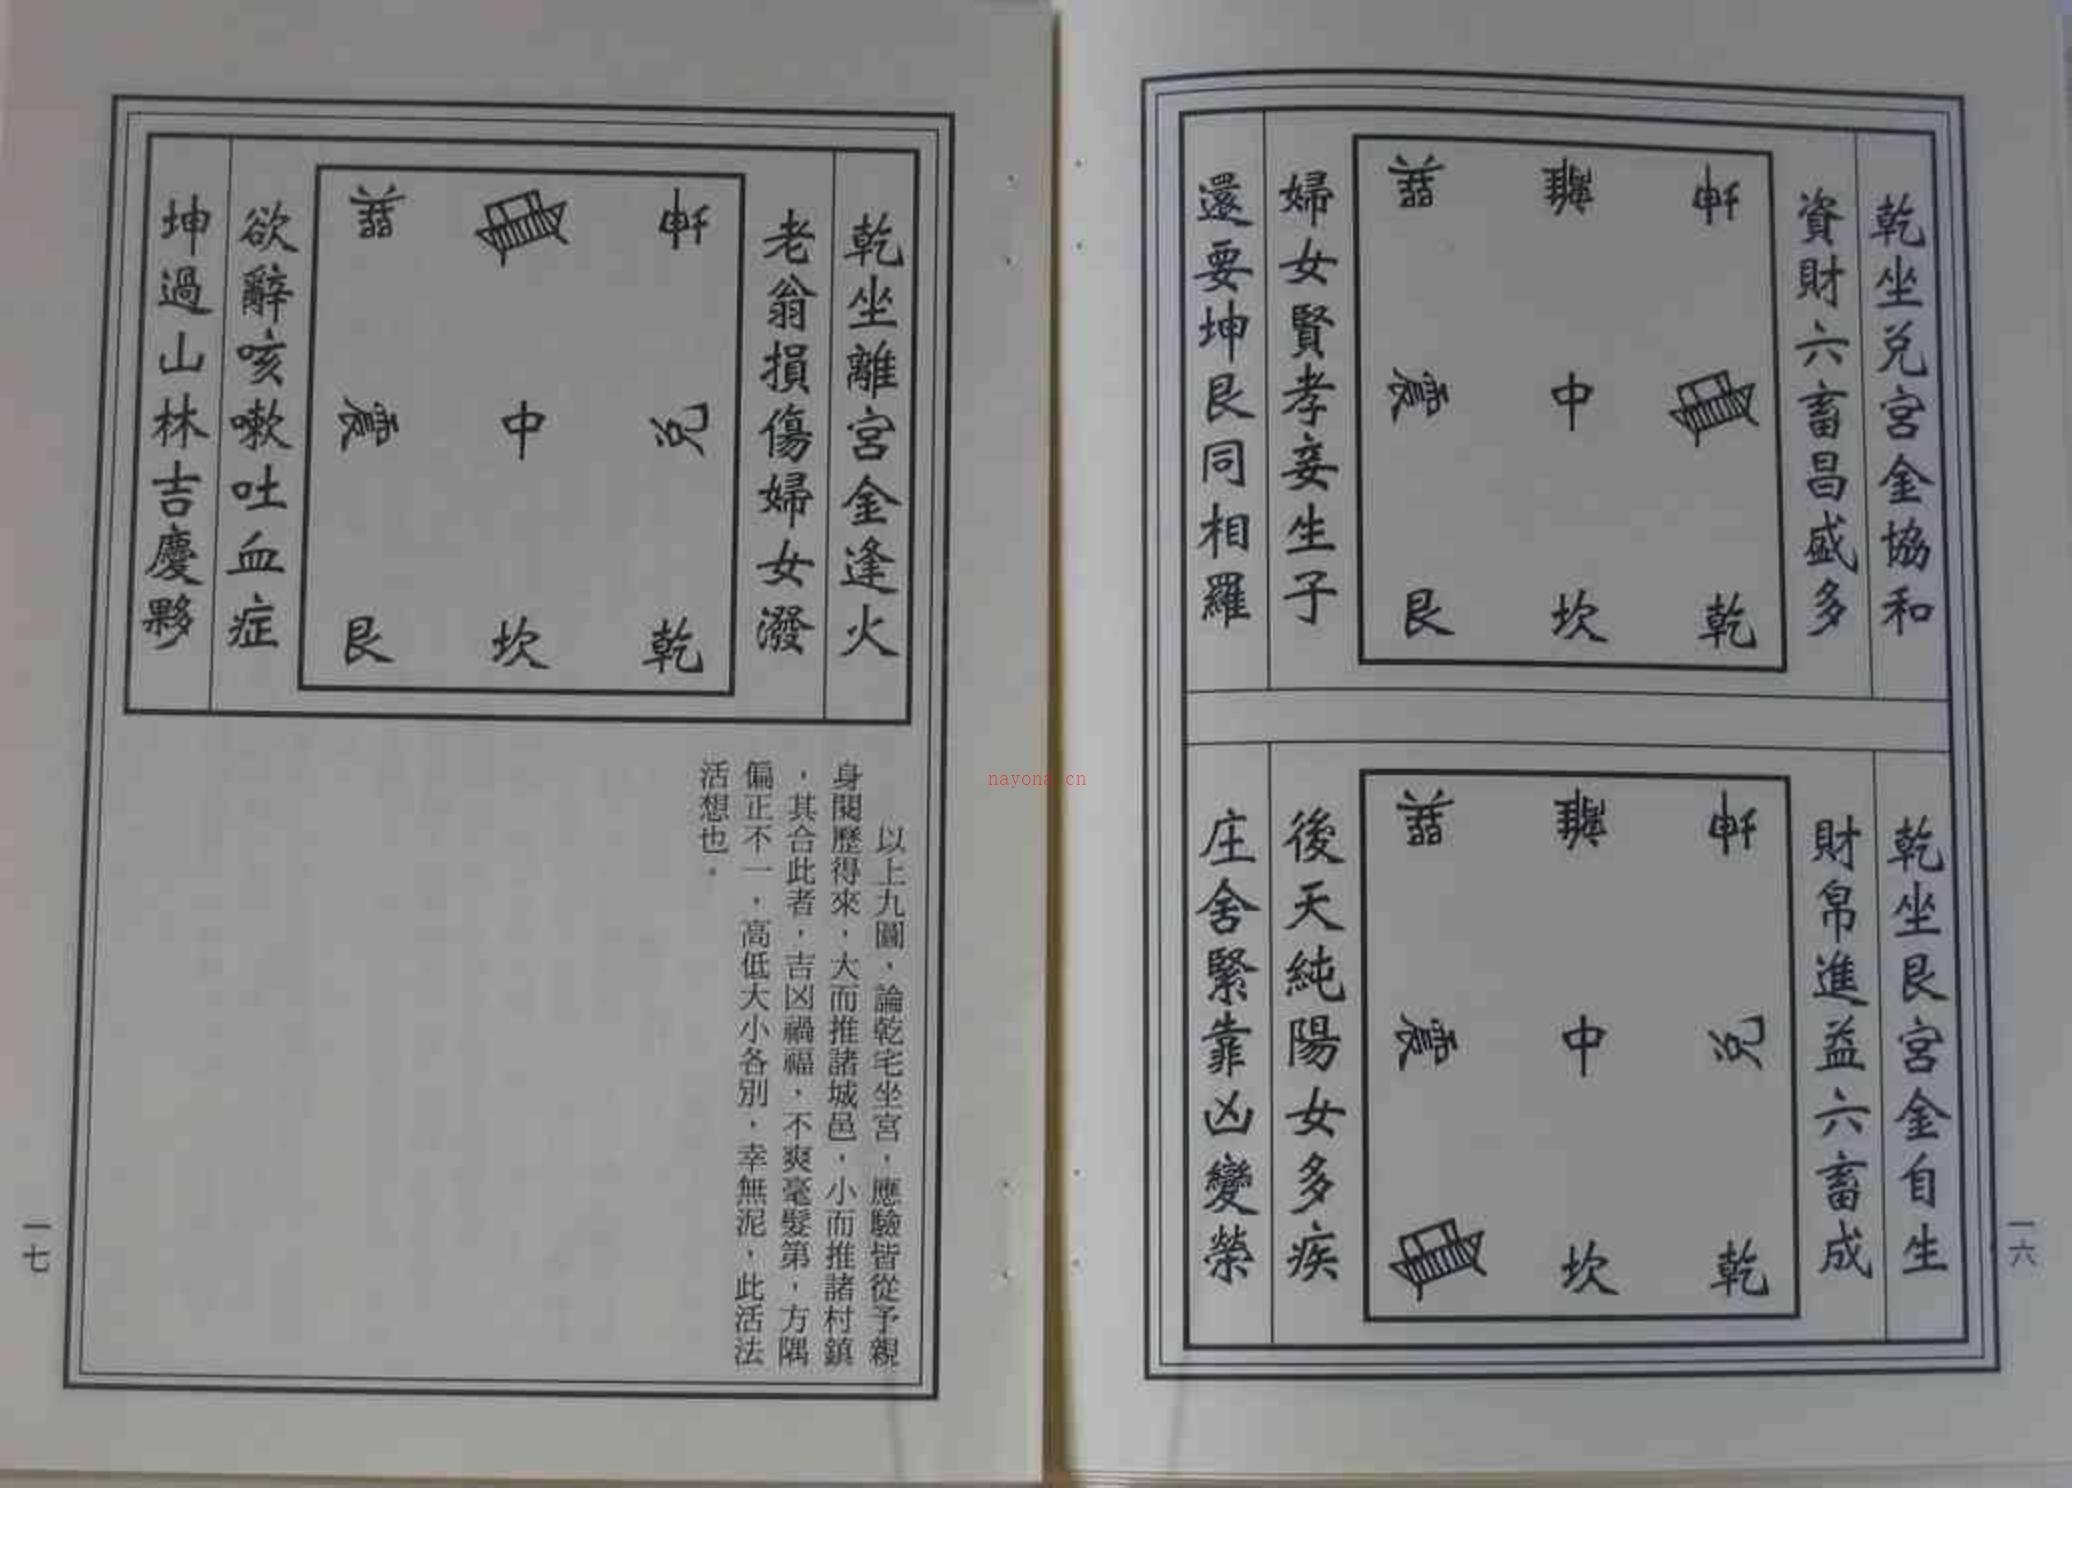 乾坐兌宮金協和
資財六畜昌盛多
坤 巽
兌 中 震
乾 坎 艮
婦女賢孝妾生子
還要坤艮同相羅
乾坐艮宮金自生
財帛進益六畜成
坤 巽
兌 中 震
乾 坎
後天純陽女多疾
庄舍緊靠凶變榮
一六
乾坐離宮金逢火
老翁損傷婦女潑
坤 巽
兌 中 震
乾 坎 艮
欲辭咳嗽吐血症
坤過山林吉慶夥
以上九圖，論乾宅坐宮，應驗皆從予親
身閱歷得來，大而推諸城邑，小而推諸村鎮
，其合此者，吉凶禍福，不爽毫髮第，方隅
偏正不一，高低大小各別，幸無泥，此活法
活想也。
一七
nayona.cn